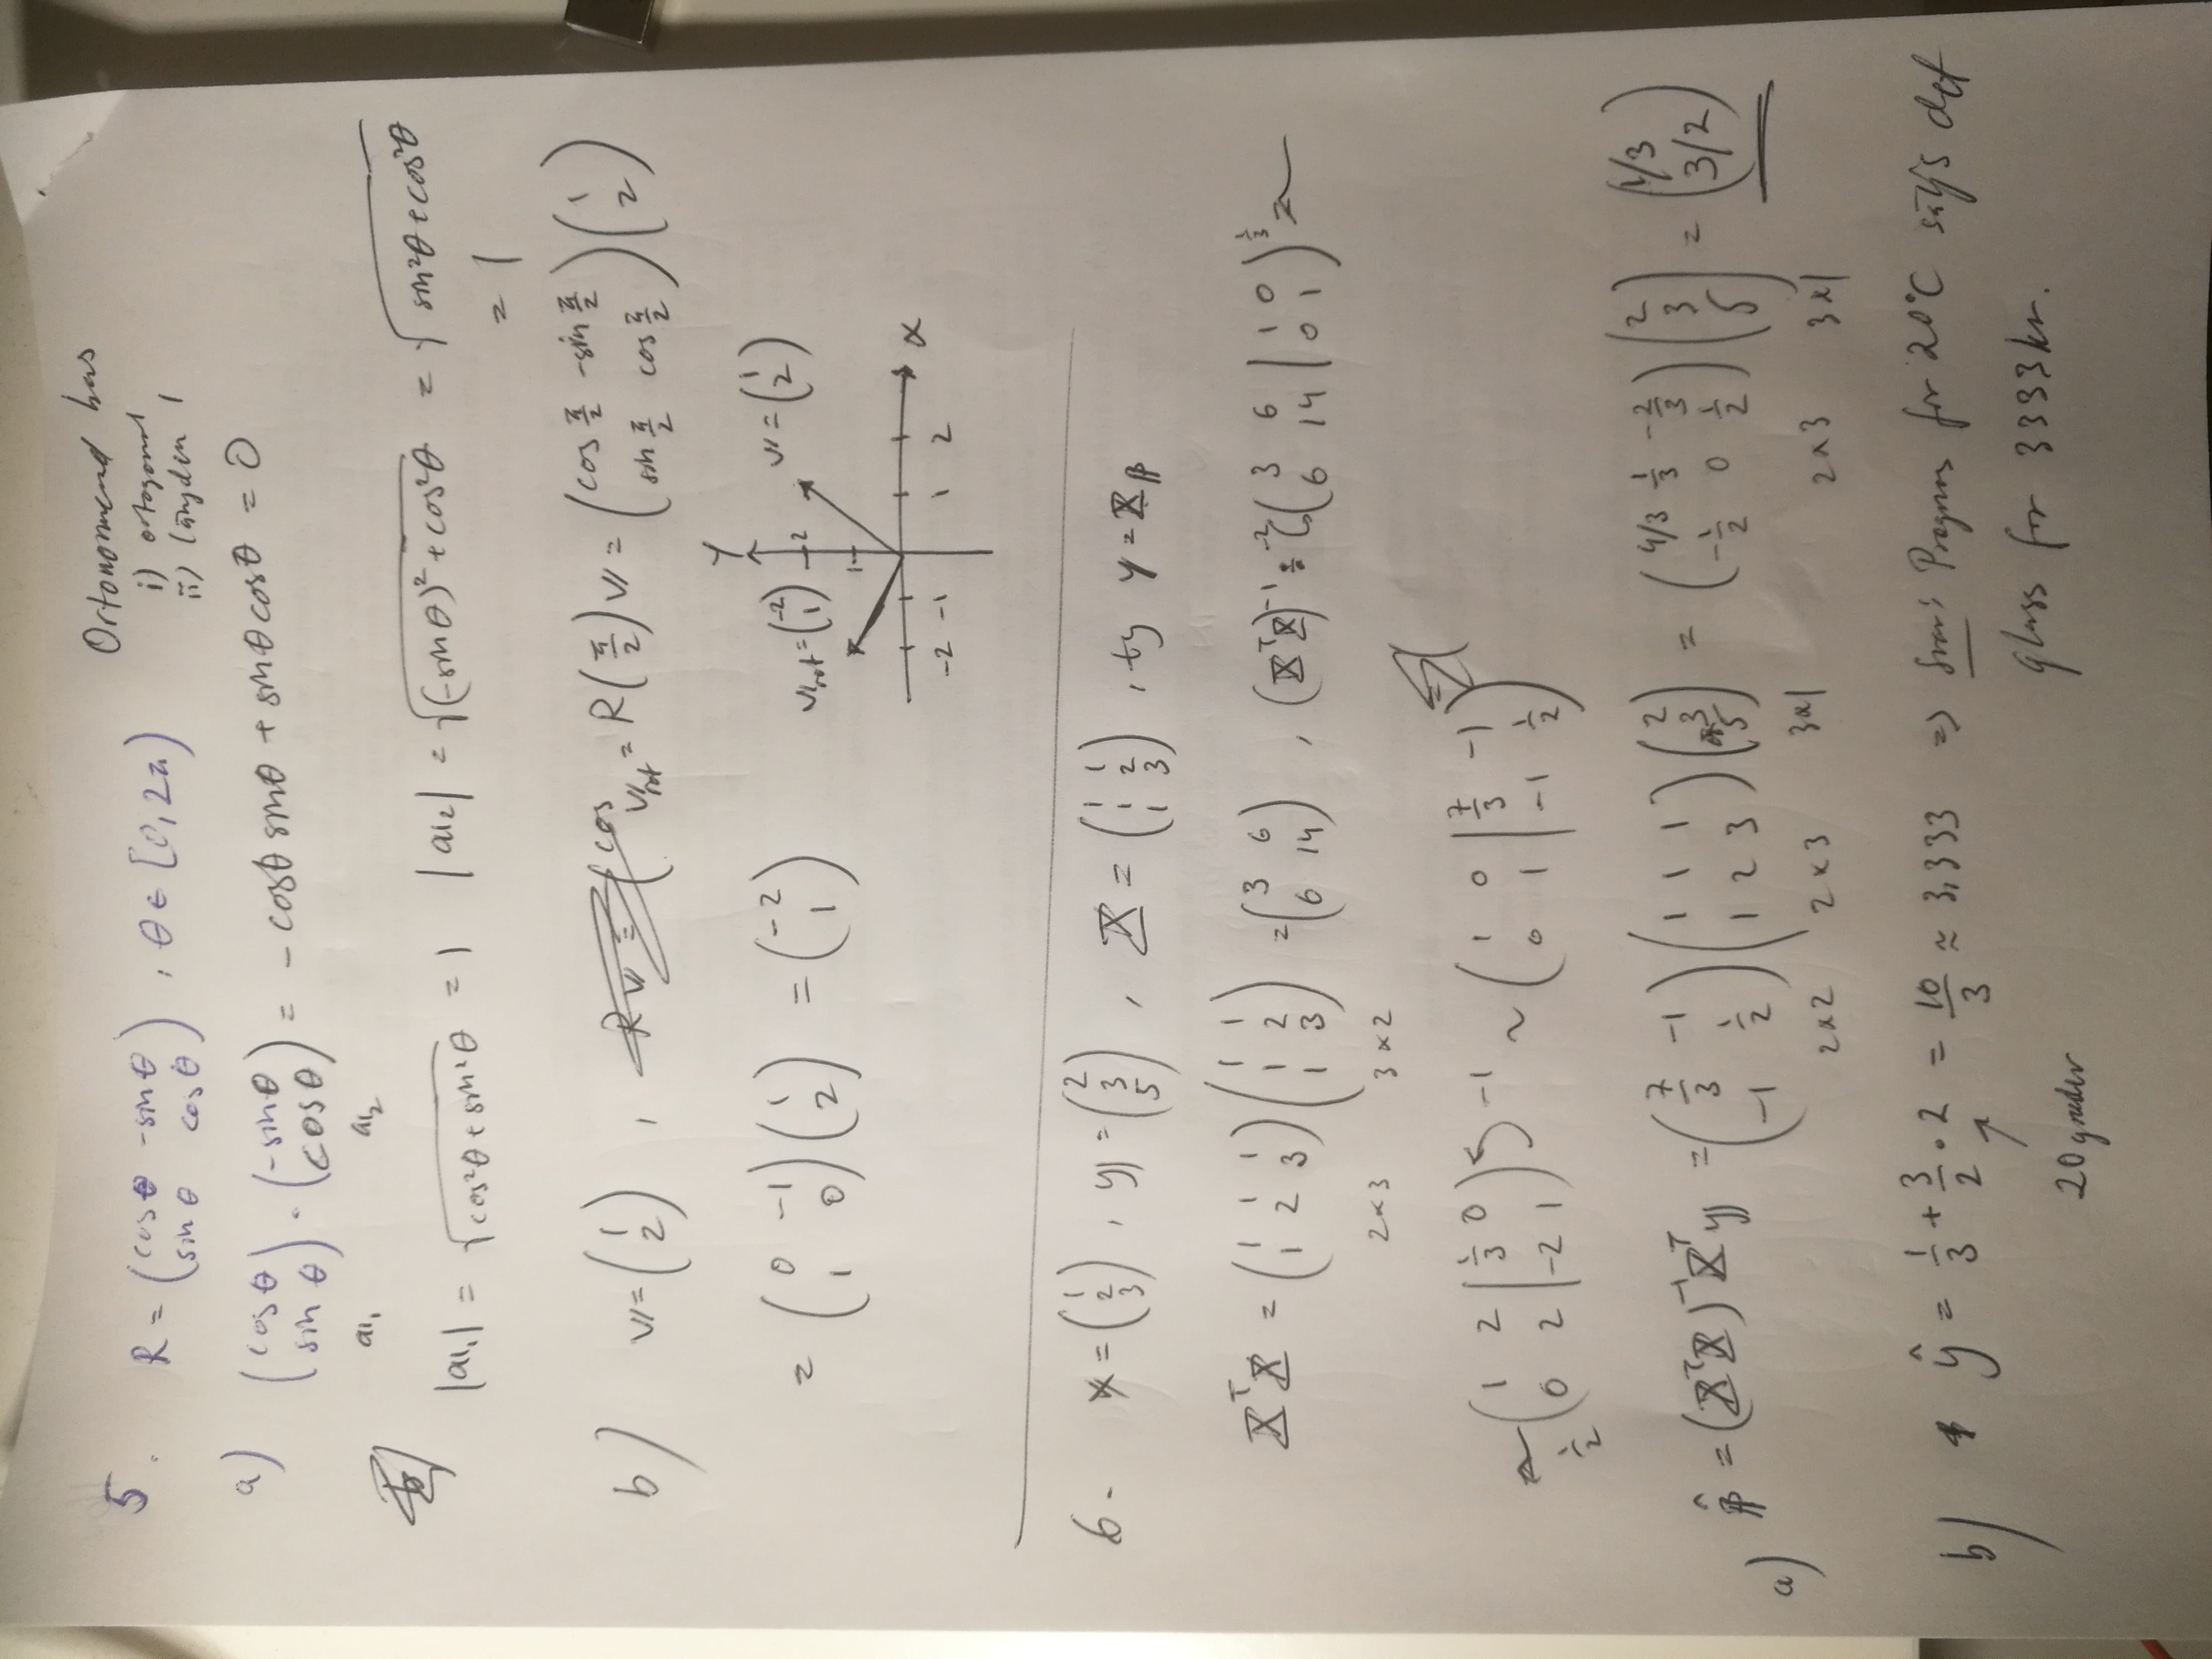 Ortonormerad bas
i) ortogonal
ii) längden 1
5. R = (cosθ -sinθ; sinθ cosθ), θ ∈ [0, 2π)
a) (cosθ; sinθ) · (-sinθ; cosθ) = -cosθ sinθ + sinθ cosθ = 0
a₁ a₂
|a₁| = √(cos²θ + sin²θ) = 1 |a₂| = √((-sinθ)² + cos²θ) = √(sin²θ + cos²θ)
= 1
b) v = (1; 2), v_rot = R(π/2) v = (cos π/2 -sin π/2; sin π/2 cos π/2)(1; 2)
= (0 -1; 1 0)(1; 2) = (-2; 1)
y
v_rot = (-2; 1) 2 v = (1; 2)
1
x
-2 -1 1 2
6. x = (1; 2; 3), y = (2; 3; 5), X = (1 1; 1 2; 1 3), ty y = Xβ
XᵀX = (1 1 1; 1 2 3)(1 1; 1 2; 1 3) = (3 6; 6 14), (XᵀX)⁻¹ : -2 (3 6 | 1 0; 6 14 | 0 1) 1/3 ~
2×3 3×2
~ 1/2 (1 2 | 1/3 0; 0 2 | -2 1) -1 ~ (1 0 | 7/3 -1; 0 1 | -1 1/2)
a) β̂ = (XᵀX)⁻¹Xᵀy = (7/3 -1; -1 1/2)(1 1 1; 1 2 3)(2; 3; 5) = (4/3 1/3 -2/3; -1/2 0 1/2)(2; 3; 5) = (1/3; 3/2)
2×2 2×3 3×1 2×3 3×1
b) ŷ = 1/3 + 3/2 · 2 = 10/3 ≈ 3,333 => Svar: Prognos för 20°C säljs det
glass för 3333 kr.
20 grader